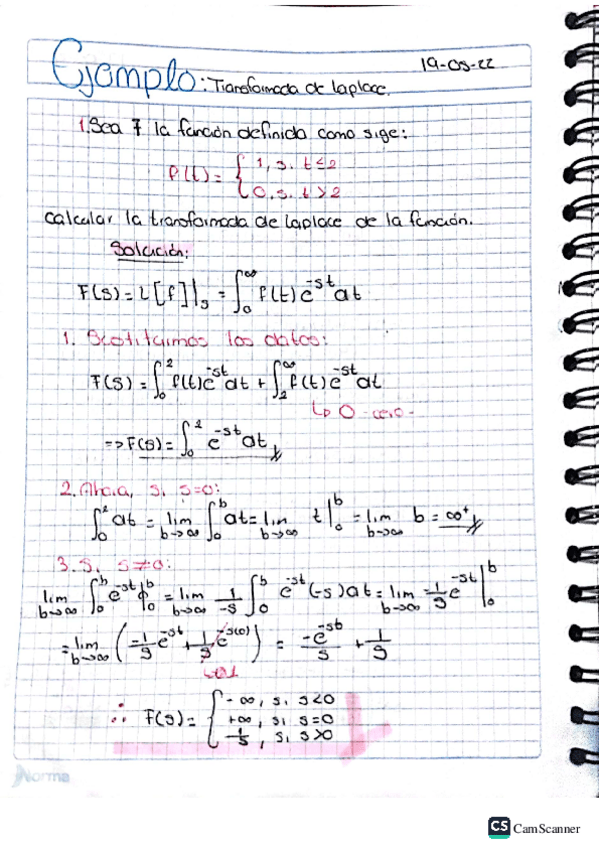 Ejemplo: Transformada de laplace. 19-05-22
1. Sea f la función definida como sige:
f(t) = { 1, si t ≤ 2
0, si t > 2
calcular la transformada de Laplace de la función.
Solución:
F(s) = L[f]|s = ∫₀^∞ f(t) e^-st dt
1. Sustituimos los datos:
F(s) = ∫₀² f(t) e^-st dt + ∫₂^∞ f(t) e^-st dt
↳ 0 - cero -
=> F(s) = ∫₀² e^-st dt
2. Ahora, si s=0:
∫₀² dt = lim b→∞ ∫₀^b dt = lim b→∞ t |₀^b = lim b→∞ b = ∞⁺
3. Si s≠0:
lim b→∞ ∫₀^b e^-st ϕ|₀^b = lim b→∞ 1/-s ∫₀^b e^-st (-s) dt = lim b→∞ -1/s e^-st |₀^b
= lim b→∞ (-1/s e^-sb + 1/s e^-s(0)) = -e^-sb/s + 1/s
↳ 1
∴ F(s) = { -∞, si s<0
+∞, si s=0
1/s, si s>0
Norma
CS CamScanner